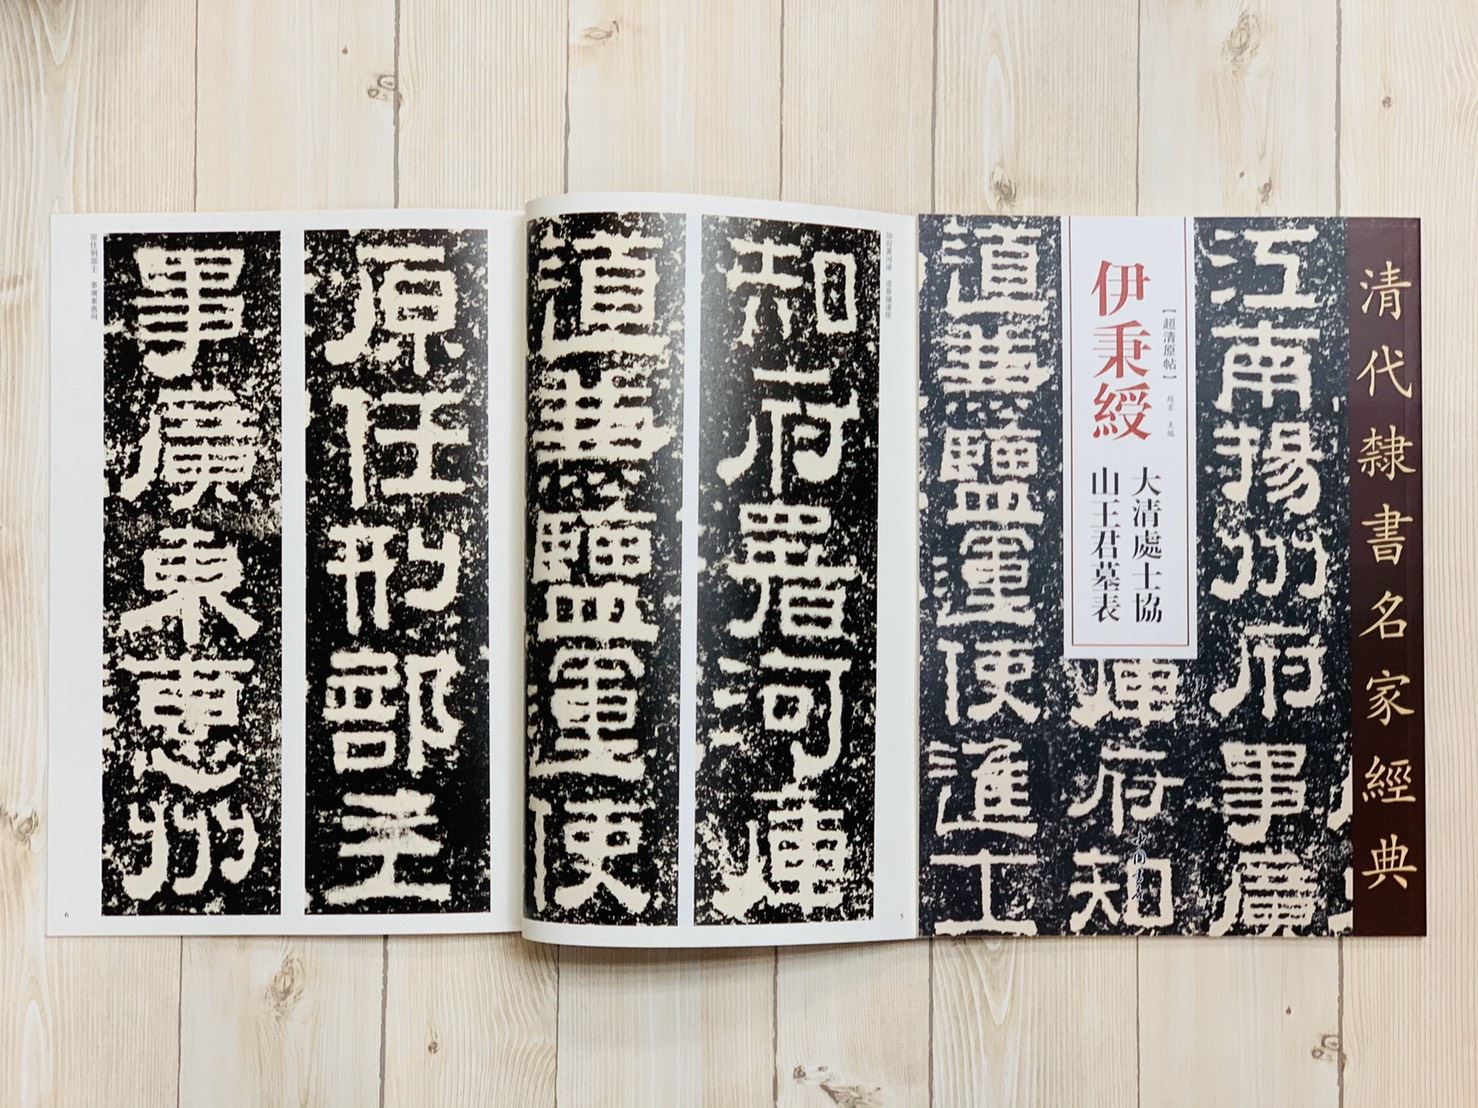 清代隸書名家經典
江南揚州府事廣
【超清原帖】 趙宏 主編
伊秉綬
大清處士協
山王君墓表
庫府知
道兼鹽運使進士
知府署河庫 道兼鹽運使
知府署河庫
道兼鹽運使
5
原任刑部主
事廣東惠州
原任刑部主 事廣東惠州
6